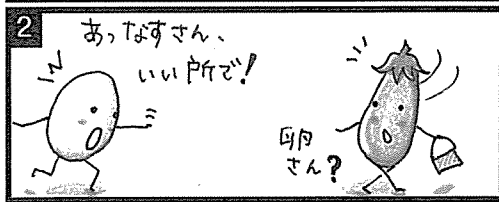 2
あっなすさん、
いい所で！
卵
さん？